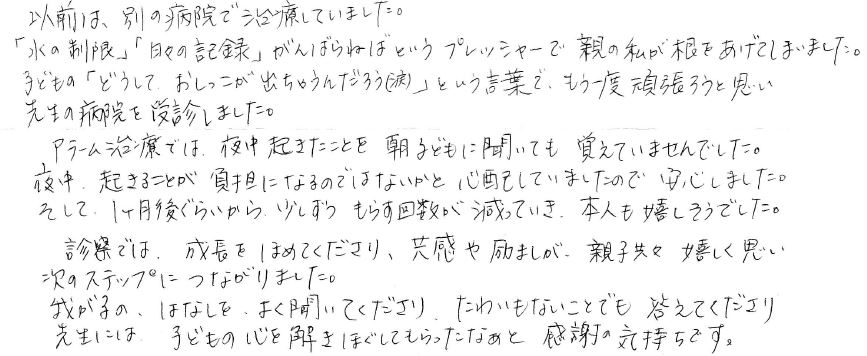 以前は、別の病院で治療していました。
「水の制限」「日々の記録」がんばらねばというプレッシャーで親の私が根をあげてしまいました。
子どもの「どうして、おしっこが出ちゃうんだろう(涙)」という言葉で、もう一度頑張ろうと思い
先生の病院を受診しました。
アラーム治療では、夜中起きたことを朝子どもに聞いても覚えていませんでした。
夜中、起きることが負担になるのではないかと心配していましたので安心しました。
そして、1ヶ月後ぐらいから、少しずつもらす回数が減っていき、本人も嬉しそうでした。
診察では、成長をほめてくださり、共感や励ましが、親子共々嬉しく思い
次のステップにつながりました。
我が子の、はなしを、よく聞いてくださり、たわいもないことでも答えてくださり
先生には、子どもの心を解きほぐしてもらったなぁと感謝の気持ちです。